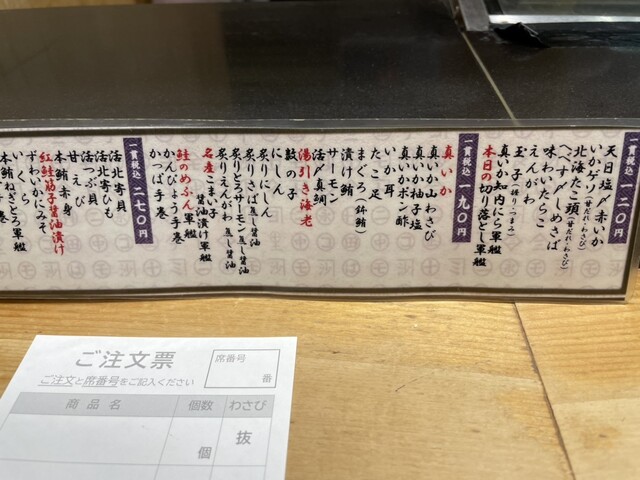 一貫税込 一二〇円
天日塩〆赤いか
いかゲソ(甘だれ・わさび)
北海たこ頭(甘だれ・わさび)
へべす〆しめさば
味わいたらこ
えんがわ
玉子(握り・つまみ)
本日の切り落とし軍艦
真いか知内にら軍艦
一貫税込 一九〇円
真いか
真いか山わさび
真いか柚子塩
真いかポン酢
いか耳
たこ足
まぐろ(鉢鮪)
漬け鮪
サーモン
活〆真鯛
湯引き海老
数の子
にしん
炙りにしん
炙りさば 蒸し醤油
炙りとろサーモン 蒸し醤油
炙りえんがわ 蒸し醤油
名産こまい子醤油漬け軍艦
鮭のめふん軍艦
かんぴょう手巻
かっぱ手巻
一貫税込 二七〇円
活北寄貝
活北寄ひも
活つぶ貝
甘えび
本鮪赤身
紅鮭筋子醤油漬け
ずわいかにみそ
いくら
本鮪ねぎとろ軍艦
ご注文票
席番号
番
ご注文と席番号をご記入ください
商品名 個数 わさび
個 抜